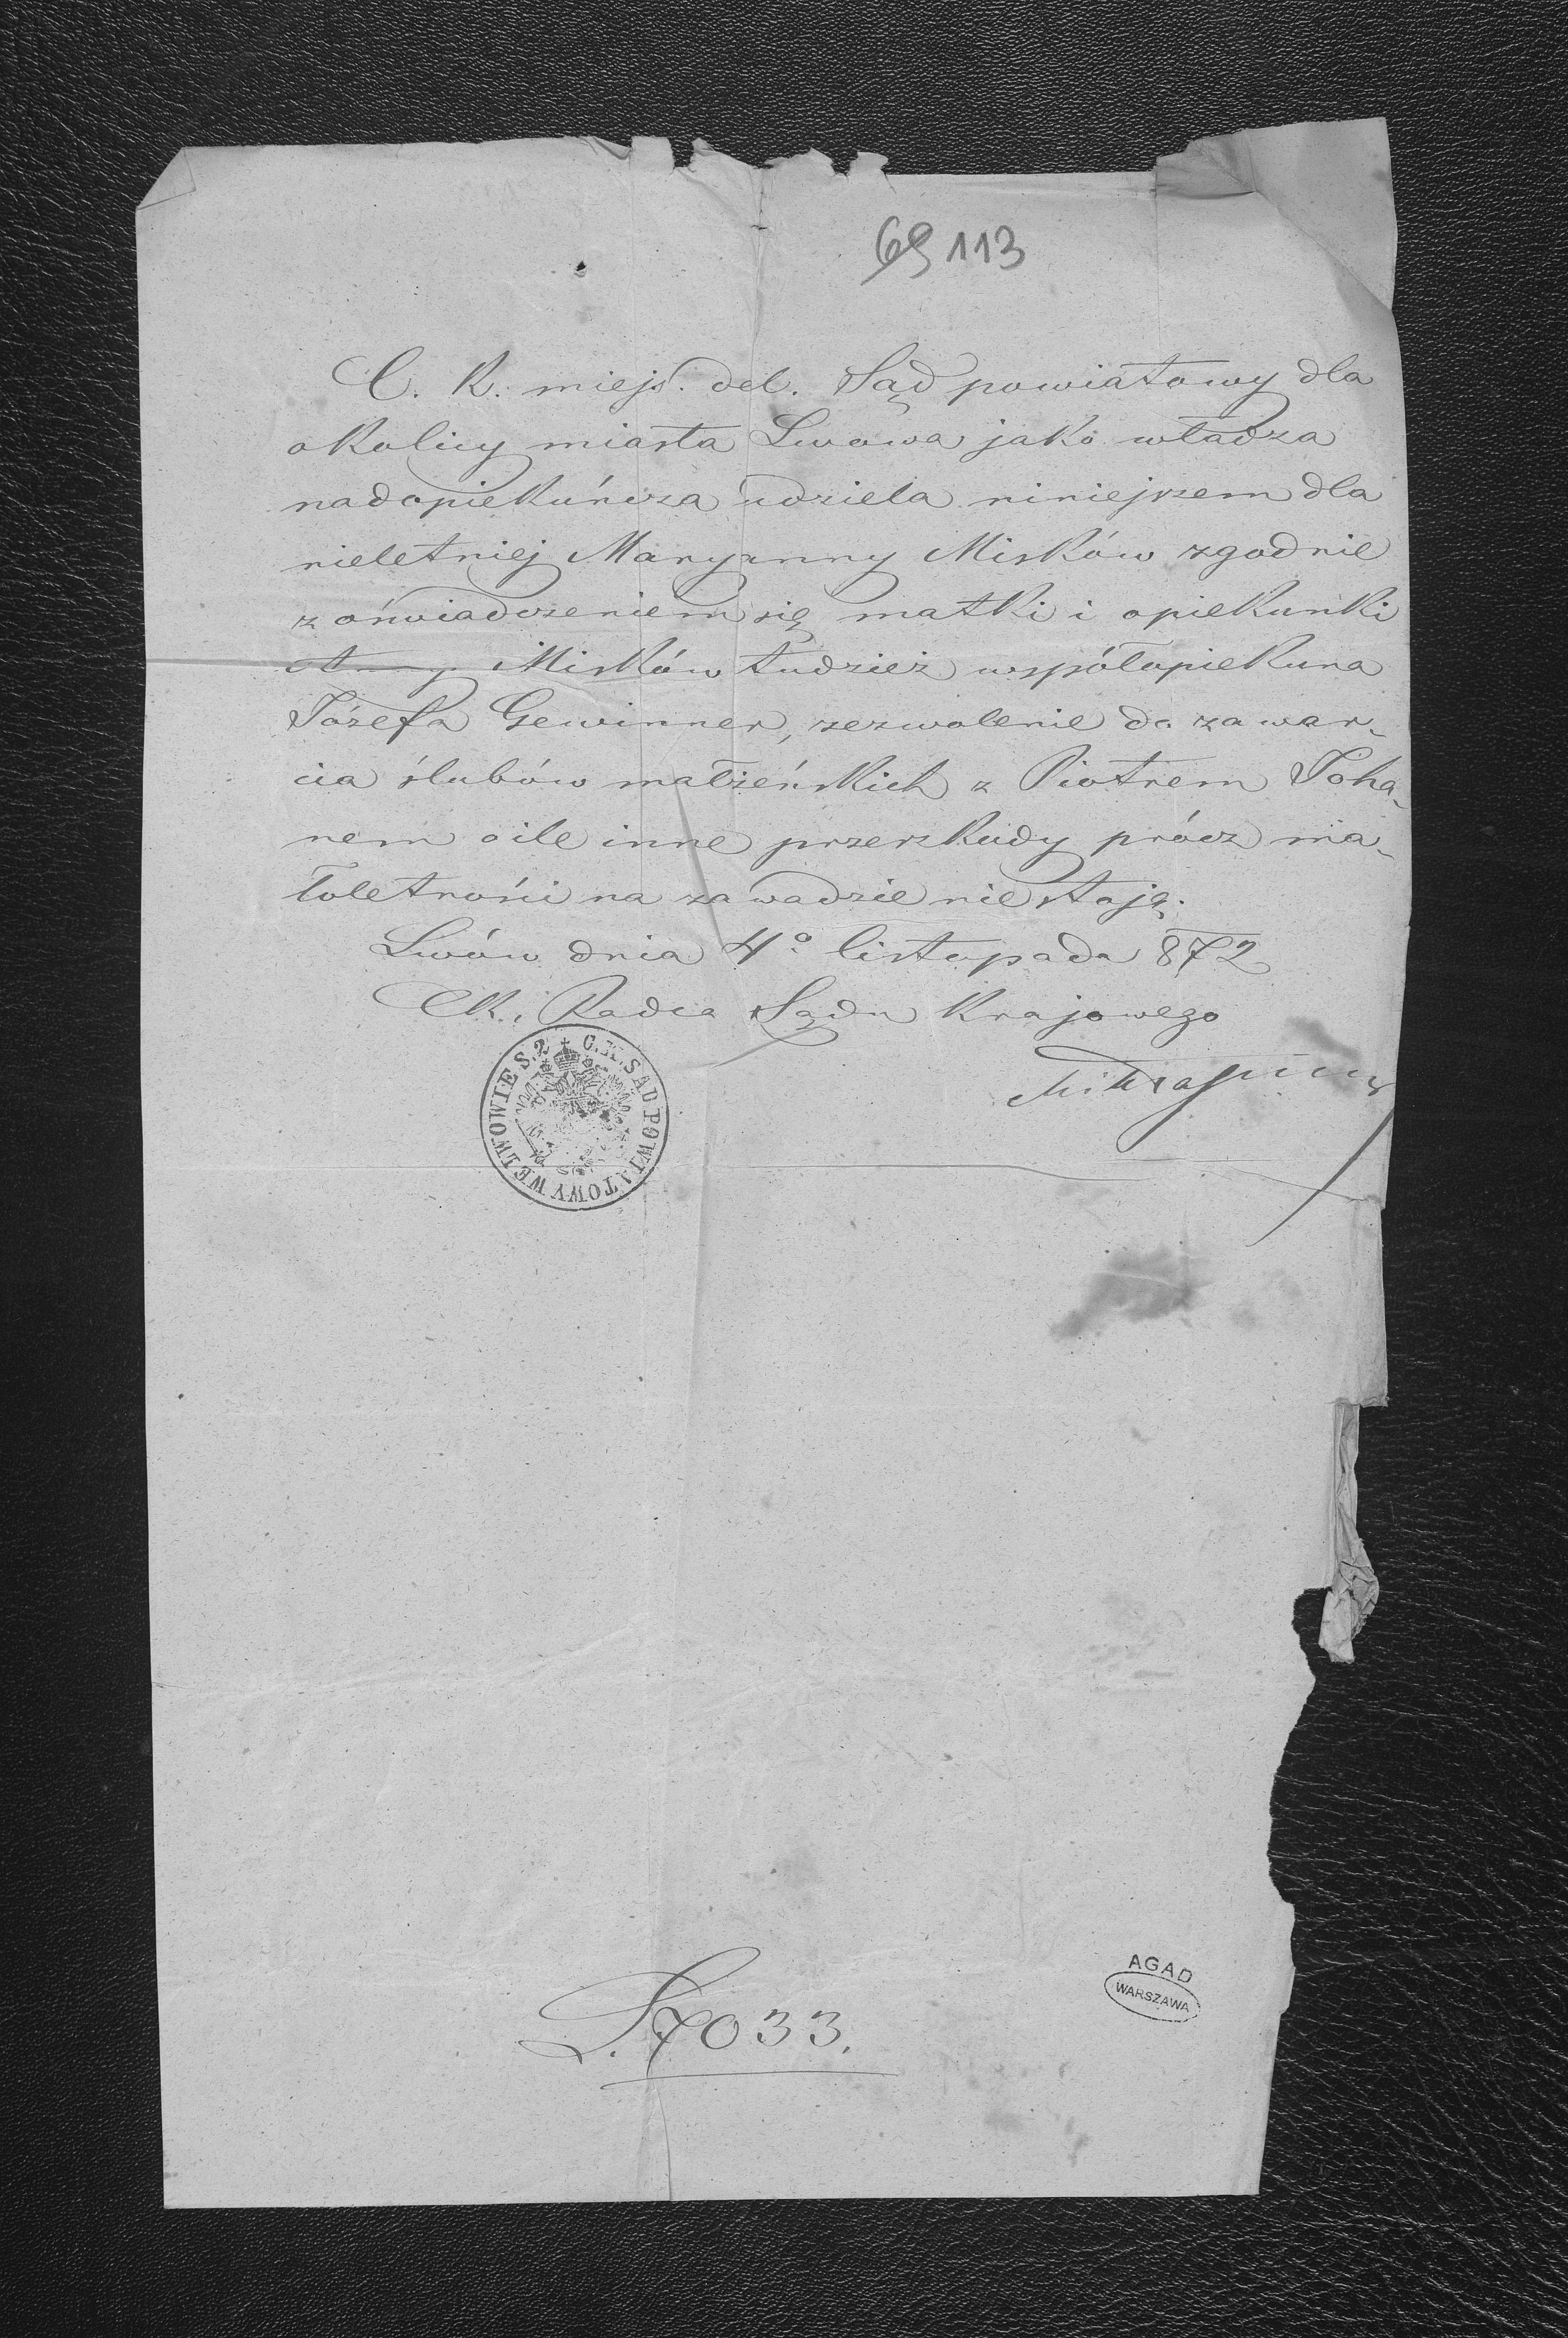 69 113
C. K. miejs. del. Sąd powiatowy dla
okolicy miasta Lwowa jako władza
nadopiekuńcza udziela niniejszem dla
nieletniej Maryanny Misków zgodnie
z oświadczeniem się matki i opiekunki
Anny Misków tudzież współopiekuna
Józefa Gewinner, zezwolenie do zawar-
cia ślubów małżeńskich z Piotrem Joha-
nem o ile inne przeszkody prócz ma-
łoletności na zawadzie nie stoją.
Lwów dnia 4º listopada 872
CK. Radca Sądu Krajowego
C.K. SĄD POWIATOWY WE LWOWIE S. 2
AGAD
WARSZAWA
L. 7033.